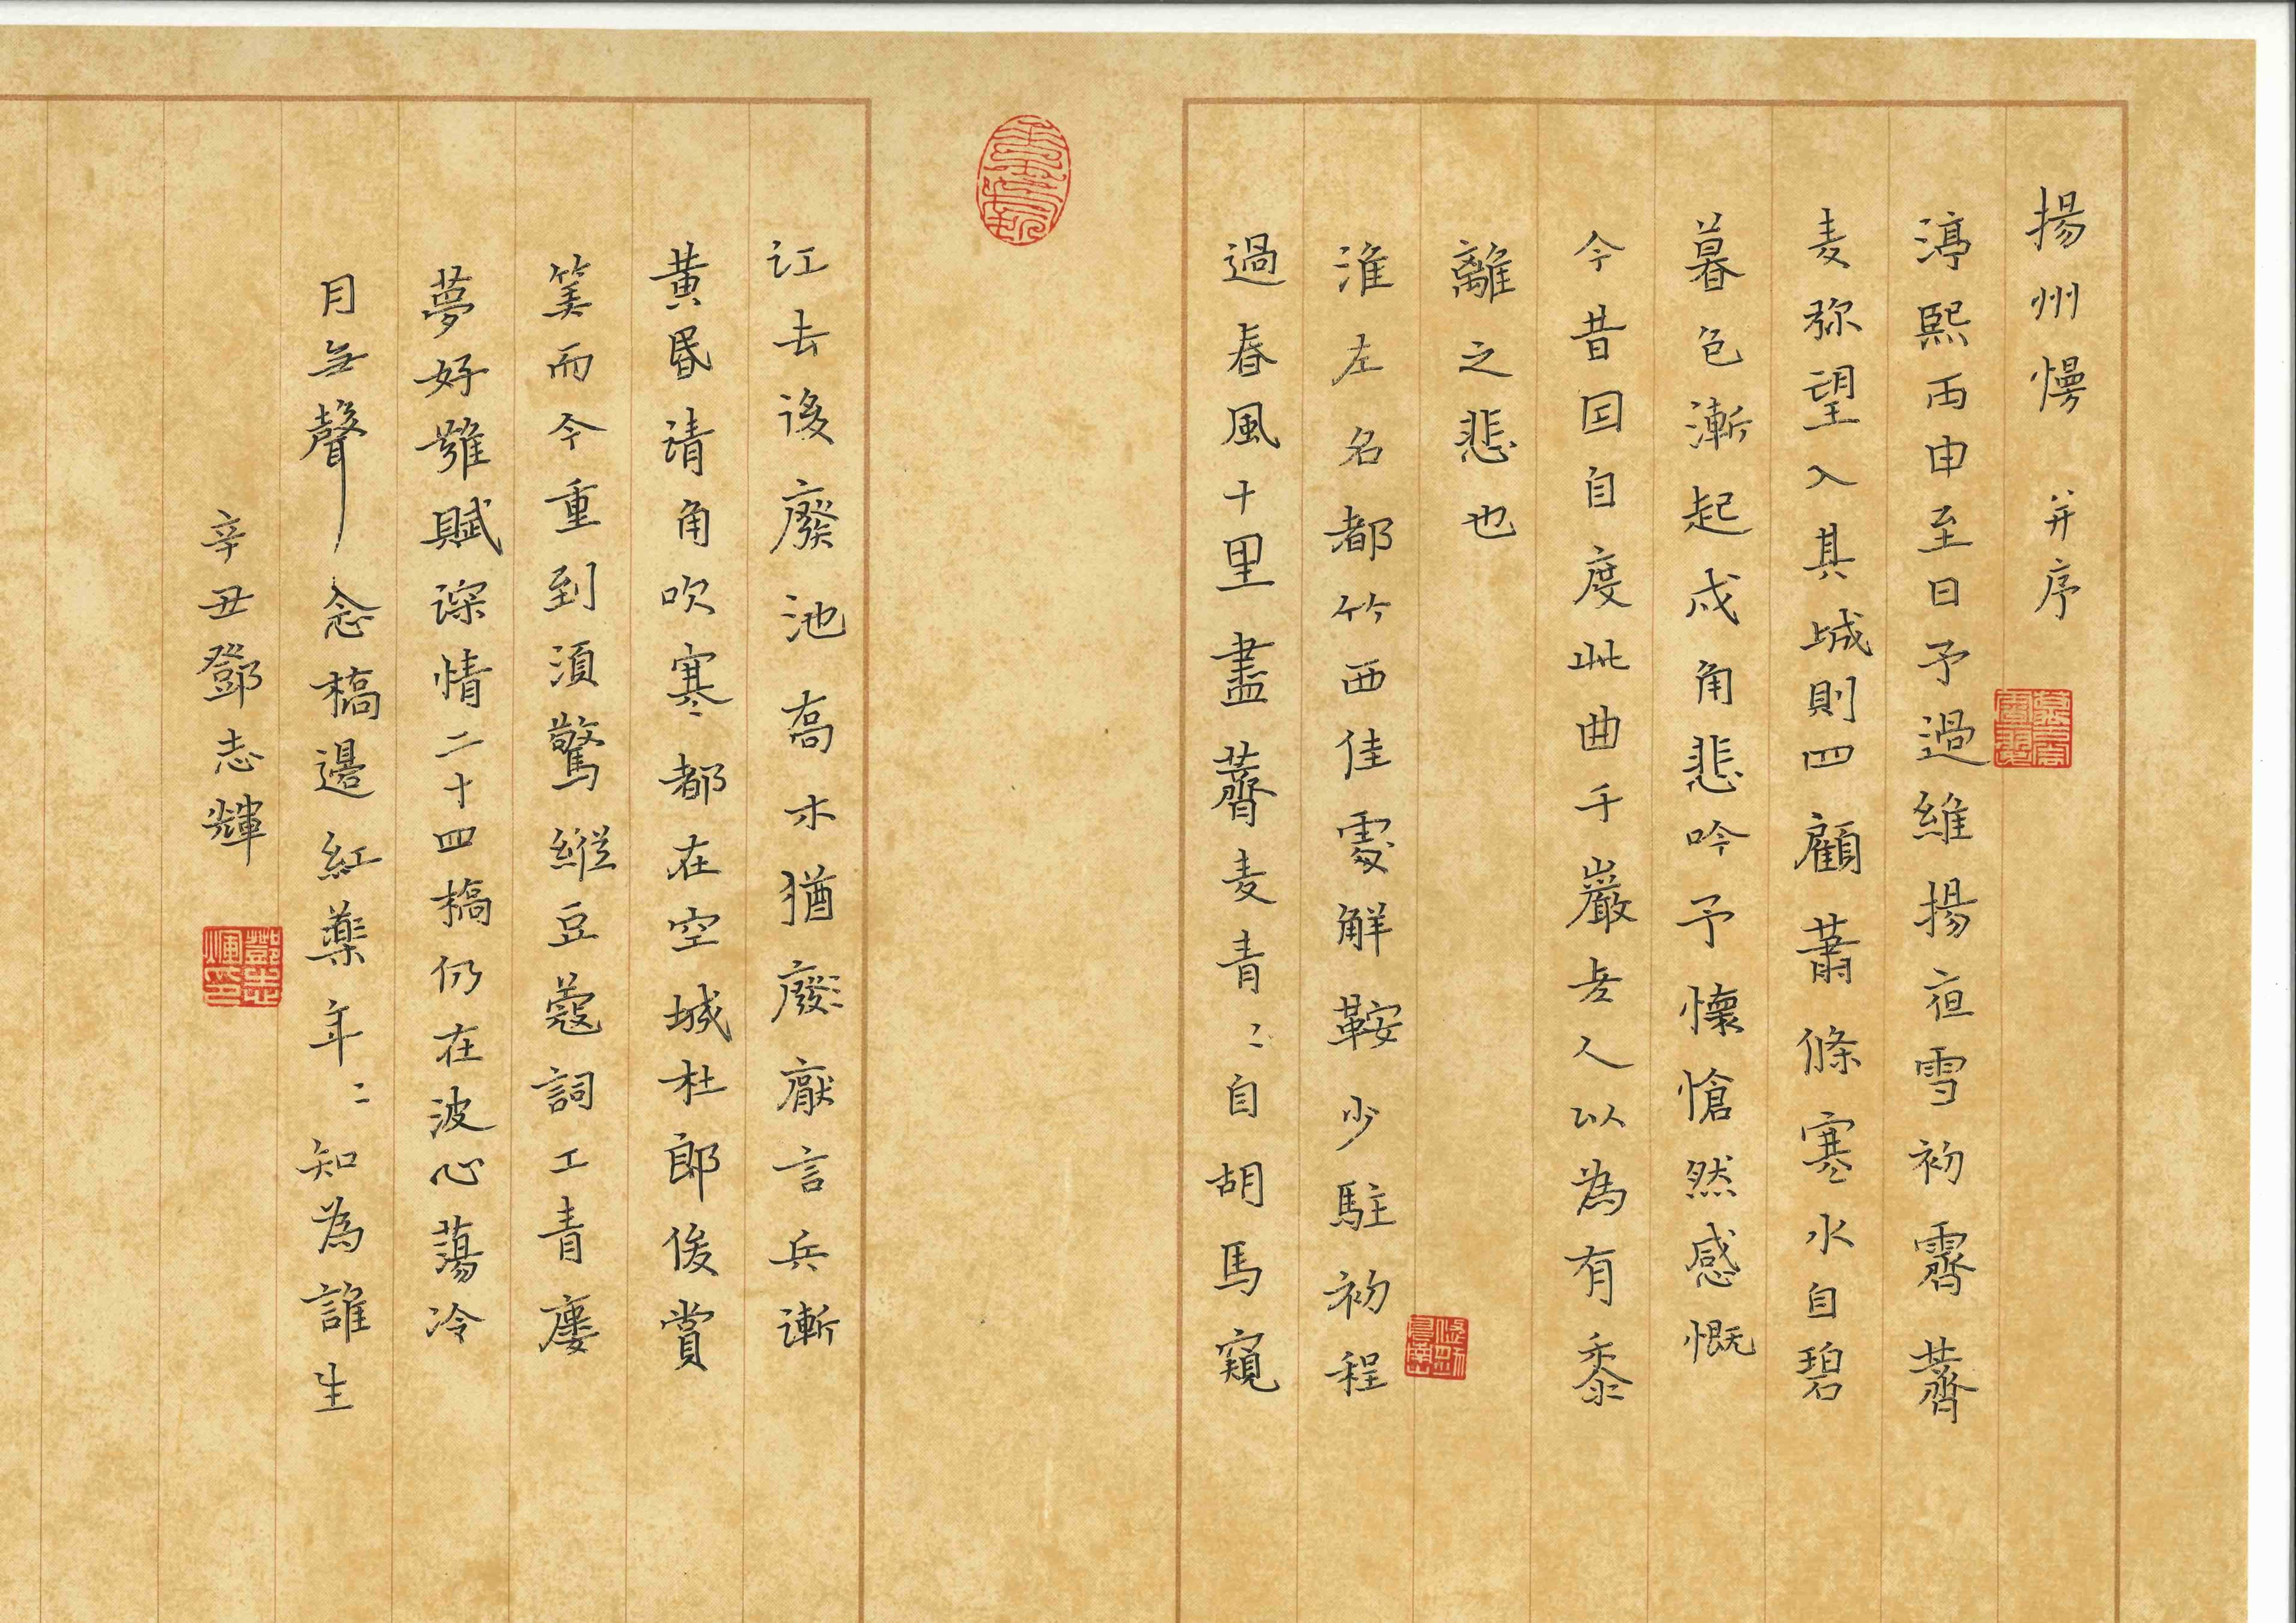 揚州慢 并序
淳熙丙申至日予過維揚夜雪初霽薺
麦弥望入其城則四顧蕭條寒水自碧
暮色漸起戍角悲吟予懷愴然感慨
今昔因自度此曲千巖老人以為有黍
離之悲也
淮左名都竹西佳處解鞍少駐初程
過春風十里盡薺麦青〻自胡馬窺
江去後廢池喬木猶廢〻厭言兵漸
黄昏清角吹寒都在空城杜郎俊賞
算而今重到須驚縱豆蔻詞工青廔
夢好難賦深情二十四橋仍在波心蕩冷
月無聲念橋邊紅藥年〻知為誰生
辛丑鄧志輝
鄧志輝印